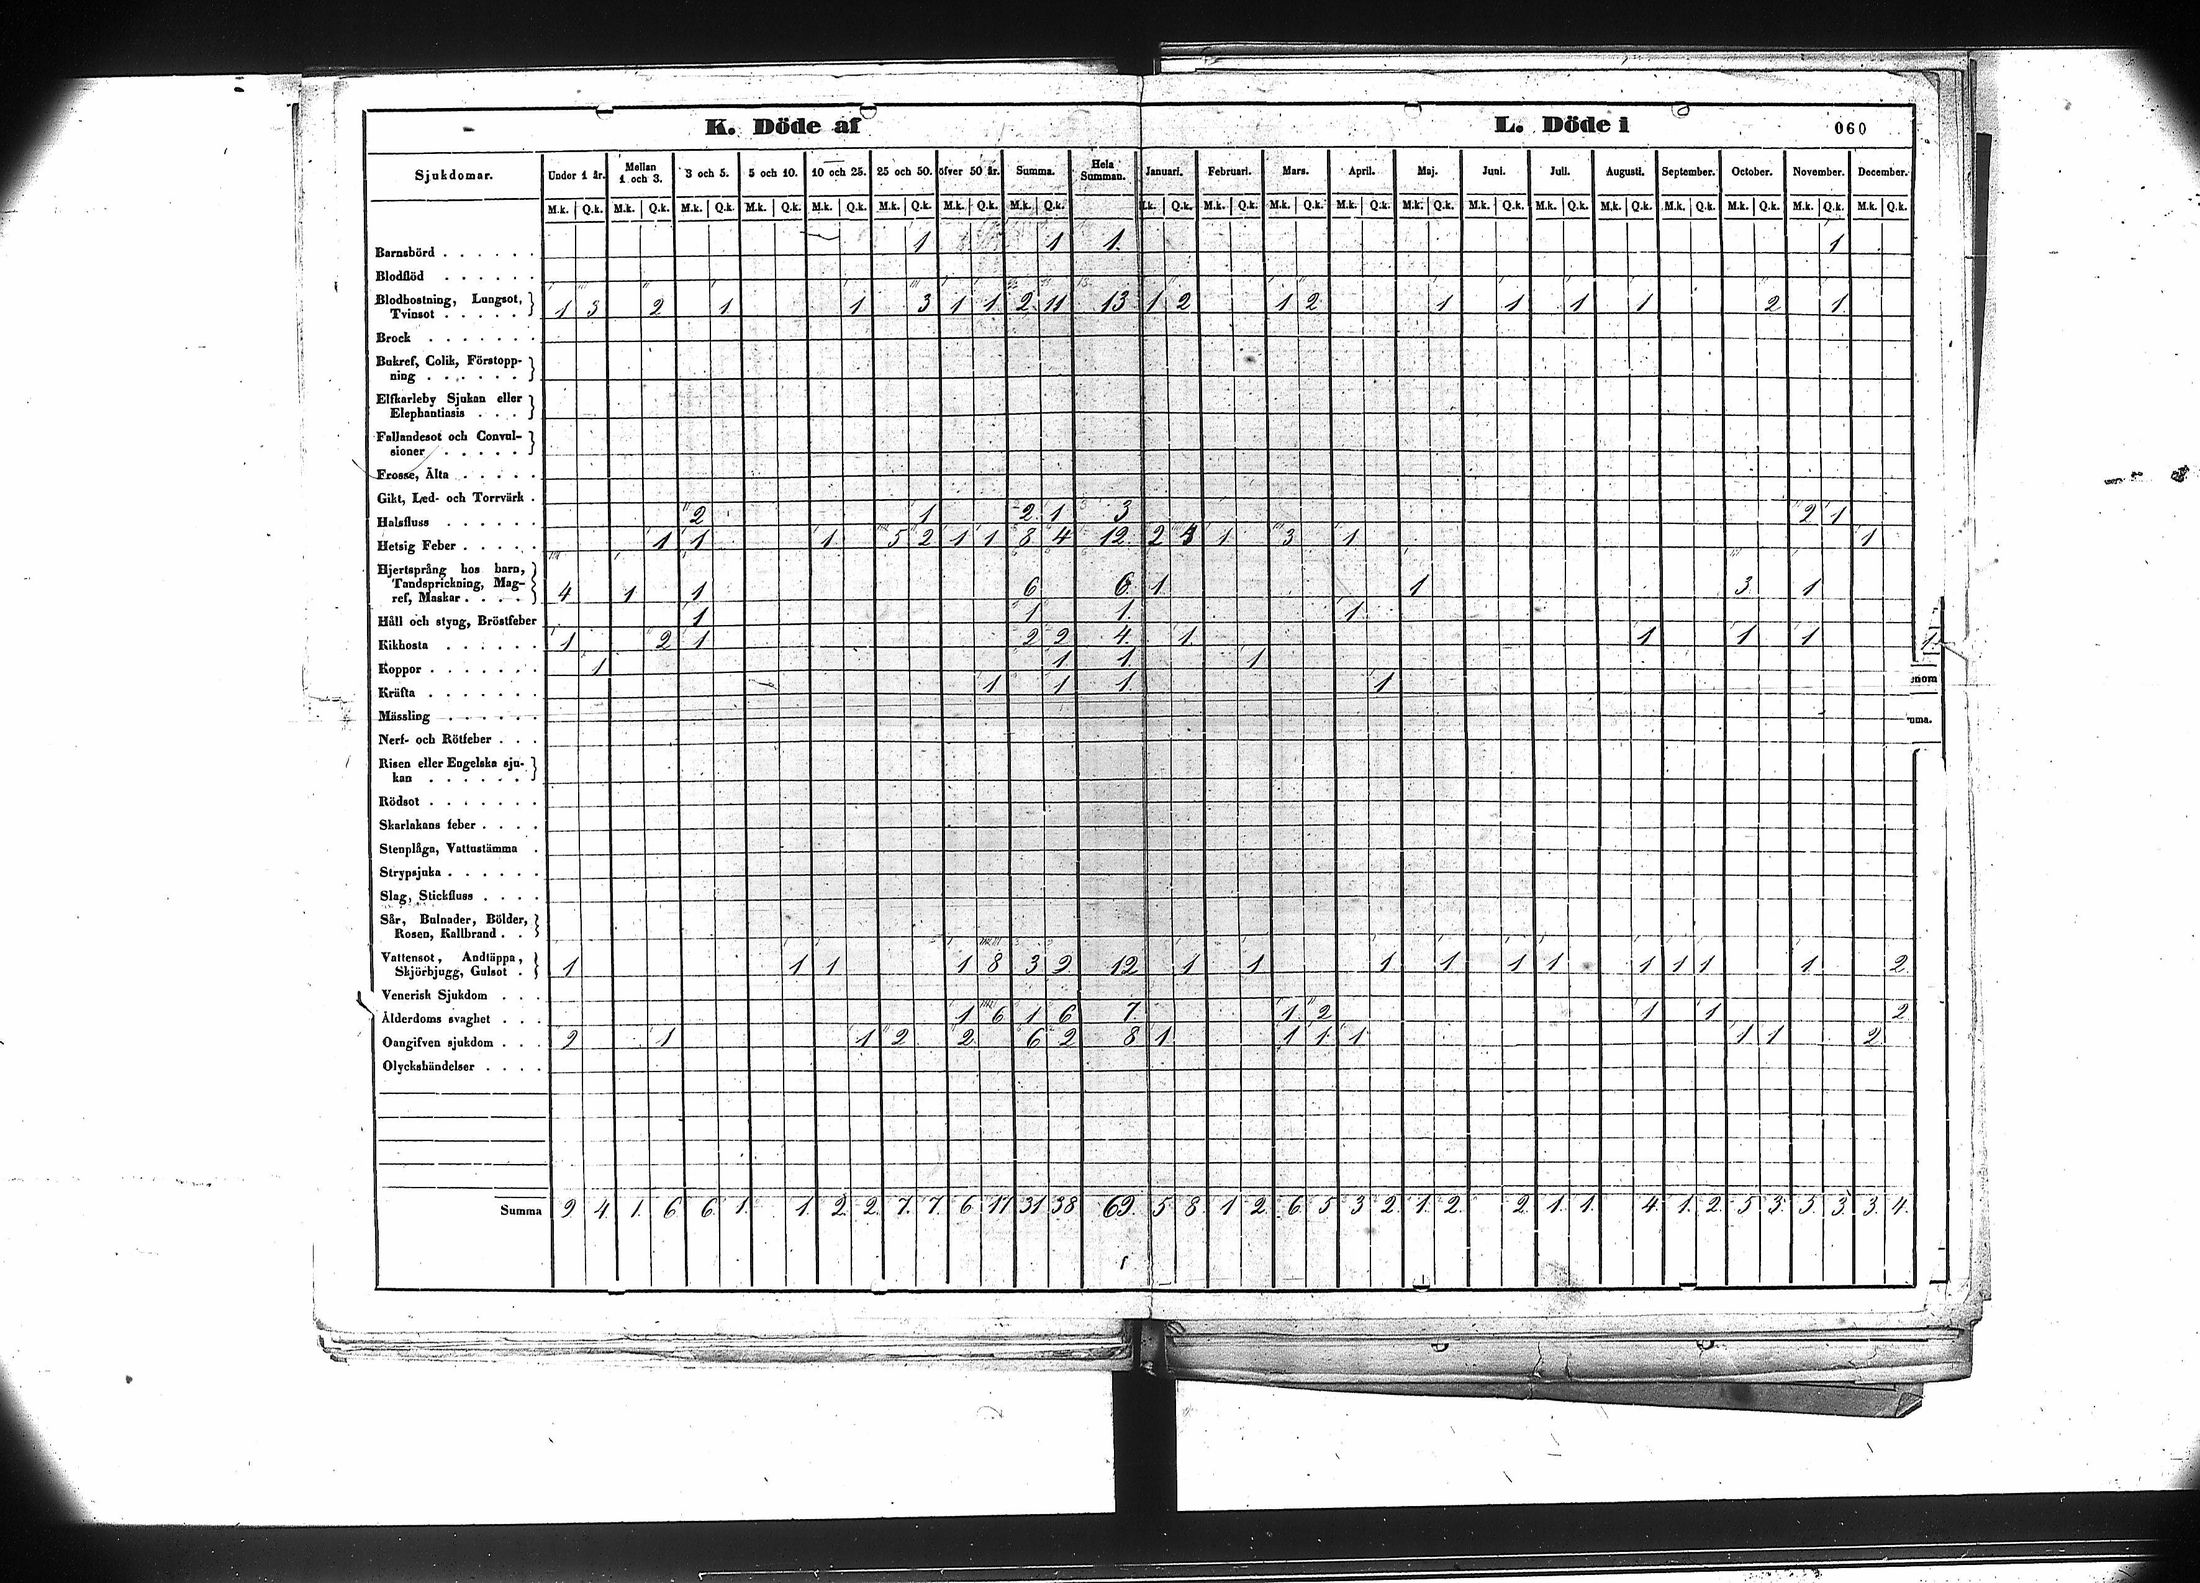 K. Döde af L. Döde i 060
Sjukdomar. Under 1 år. Mellan 1 och 3. 3 och 5. 5 och 10. 10 och 25. 25 och 50. öfver 50 år. Summa. Hela Summan. Januari. Februari. Mars. April. Maj. Juni. Juli. Augusti. September. October. November. December.
M.k. Q.k. M.k. Q.k. M.k. Q.k. M.k. Q.k. M.k. Q.k. M.k. Q.k. M.k. Q.k. M.k. Q.k. .k. Q.k. M.k. Q.k. M.k. Q.k. M.k. Q.k. M.k. Q.k. M.k. Q.k. M.k. Q.k. M.k. Q.k. M.k. Q.k. M.k. Q.k. M.k. Q.k. M.k. Q.k.
Barnsbörd . . . . . . 1 1 1. 1
Blodflöd . . . . . .
Blodhostning, Lungsot,
Tvinsot . . . . . 1 3 2 1 1 3 1 1 2 11 13 1 2 1 2 1 1 1 1 2 1
Brock . . . . . . .
Bukref, Colik, Förstopp-
ning . . . . . .
Elfkarleby Sjukan eller
Elephantiasis . . .
Fallandesot och Convul-
sioner . . . . .
Frosse, Älta . . . . .
Gikt, Led- och Torrvärk .
Halsfluss . . . . . . 2 1 2 1 3 2 1
Hetsig Feber . . . . . 1 1 1 5 2 1 1 8 4 12 2 4 1 3 1 1
Hjertsprång hos barn,
Tandsprickning, Mag-
ref, Maskar . . . . 4 1 1 6 6 1 1 3 1
Håll och styng, Bröstfeber 1 1 1. 1
Kikhosta . . . . . . 1 2 1 2 2 4. 1 1 1 1 1
Koppor . . . . . . . 1 1 1. 1
enom
Kräfta . . . . . . . 1 1 1 1
Mässling . . . . . .
Nerf- och Rötfeber . . .
Risen eller Engelska sju-
kan . . . . . .
Rödsot . . . . . . .
Skarlakans feber . . . .
Stenplåga, Vattustämma .
Strypsjuka . . . . . .
Slag, Stickfluss . . . .
Sår, Bulnader, Bölder,
Rosen, Kallbrand . .
Vattensot, Andtäppa,
Skjörbjugg, Gulsot . 1 1 1 1 8 3 9 12 1 1 1 1 1 1 1 1 1 1 2
Venerisk Sjukdom . . .
Ålderdoms svaghet . . . 1 6 1 6 7. 1 2 1 1 2
Oangifven sjukdom . . . 2 1 1 2 2 6 2 8 1 1 1 1 1 1 2
Olyckshändelser . . . .
Summa 9 4 1 6 6 1 1 2 2 7 7 6 17 31 38 69 5 8 1 2 6 5 3 2 1 2 2 1 1 4 1 2 5 3 5 3 3 4